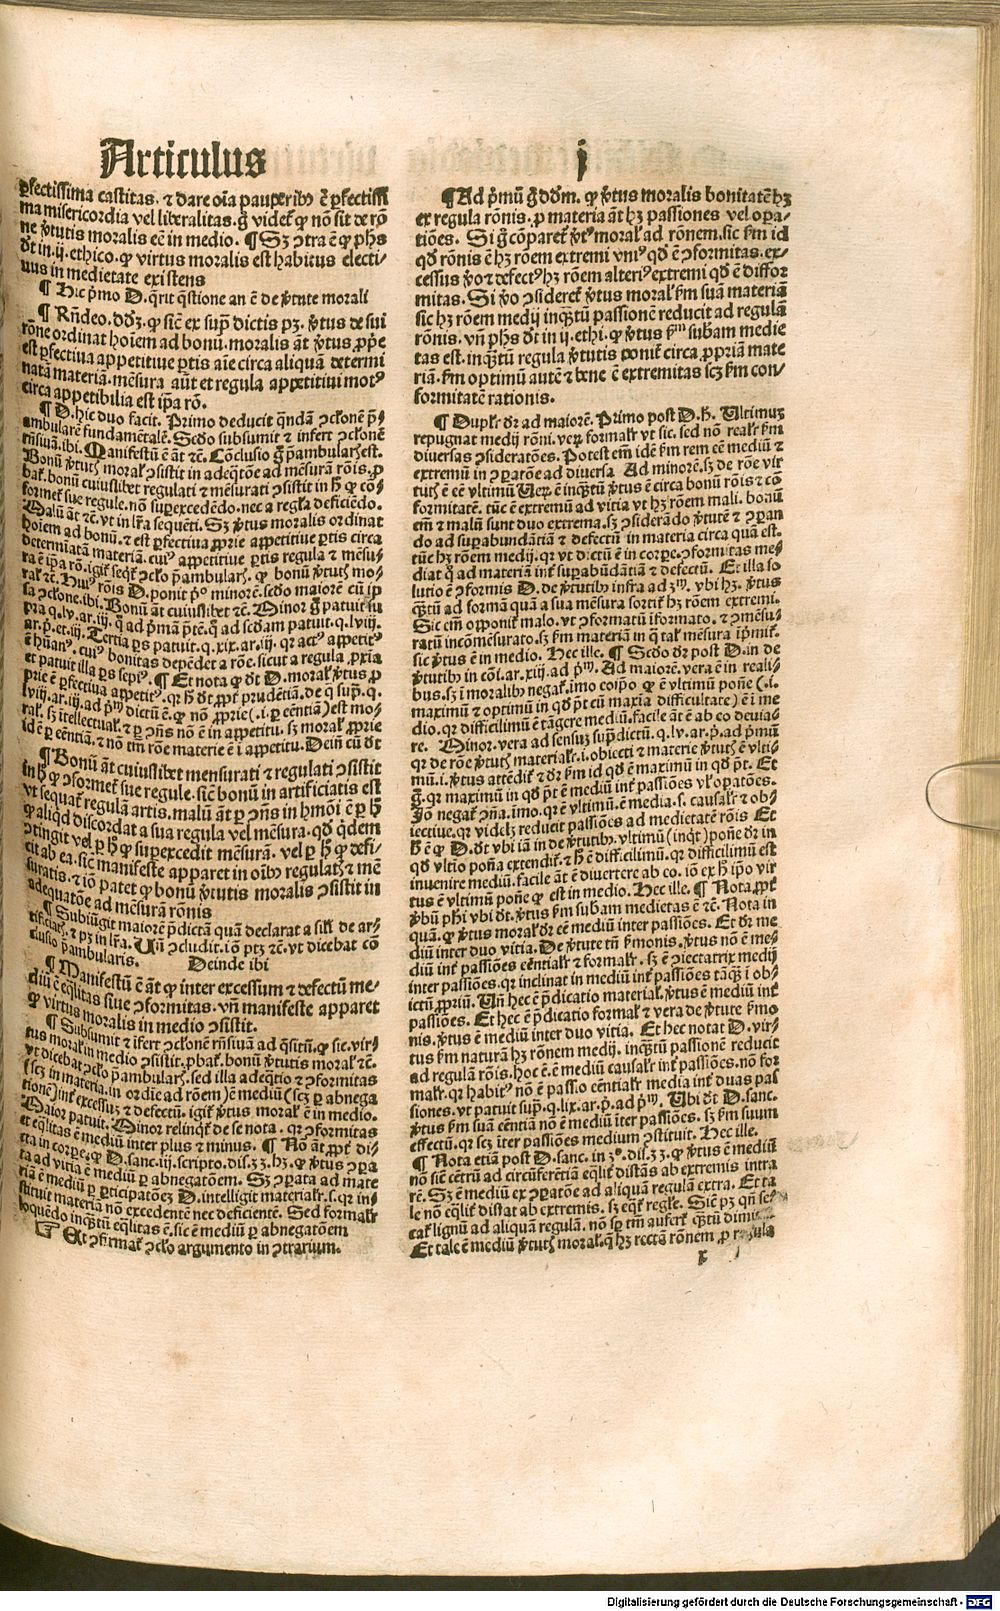 Articulus
i
ꝑfectissima castitas. ⁊ dare oı̄a pauꝑeribꝰ ē ꝑfectissi
ma misericordia vel liberalitas. gͦ videt̃ ꝙ nō sit de rō
ne v̓tutis moralis eē in medio. ¶ Sꝫ ꝯtra ē ꝙ ph̄s
dt̄ in .ij. ethico. ꝙ virtus moralis est habitus electi-
uus in medietate existens
¶ Hic p̓mo D. q̄rit q̄stione an ē de v̓tute morali
¶ Rn̄deo. dd̄ꝫ. ꝙ sic̄ ex sup̄ dictis pꝫ. v̓tus de sui
rōne ordinat hoı̄em ad bonū. moralis āt v̓tus ꝓp̓e
est ꝑfectiua appetitiue ꝑtis aı̄e circa aliquā determi
natā materiā. mēsura aūt et regula appetitiui motꝰ
circa appetibilia est ip̄a rō.
¶ D. hic duo facit. Primo deducit q̄ndā ꝯclonē p̄-
ambularē fundamētalē. Sc̄do subsumit ⁊ infert ꝯclonē
rn̄siuā. ibi. Manifestū ē āt ⁊c̄. Cōclusio gͦ p̄ambular̃ est.
Bonū v̓tutꝭ moral̃ ꝯsistit in adeq̄tōe ad mēsurā rōis. ꝓ
bat̃. bonū cuiuslibet regulati ⁊ mēsurati ꝯsistit in h̄ ꝙ cō-
formet̃ sue regule. nō suꝑexcedēdo. nec a regl̃a deficiēdo.
Malū āt ⁊c̄. vt in lr̄a seq̄uēti. Sꝫ v̓tus moralis ordinat
hoı̄em ad bonū. ⁊ est ꝑfectiua ꝓprie appetitiue ꝑtis circa
determı̄atā materiā. cuiꝰ appetitiue ꝑtis regula ⁊ mēsu-
ra ē ip̄a rō. igit̃ seq̄t̃ ꝯclo p̄ambular̃. ꝙ bonū v̓tutꝭ mo-
ral̃ ⁊c̄. Huiꝰ rōis D. ponit p̓ͦ minorē. sc̄do maiorē cū ip̄
sa ꝯclone. ibi. Bonū āt cuiuslibet ⁊c̄. Minor gͦ patuit su
pra q. lv. ar. iij. q̄ ad p̓mā ꝑtē. q̄ ad sc̄dam patuit. q. lviij.
ar. p̓. et. iij. Tertia ꝑs patuit. q. xix. ar. iij. qr actꝰ appetitꝰ
ē hūanꝰ. cuiꝰ bonitas depēdet a rōe. sicut a regula ꝓxı̄a
et patuit illa ꝑs sepiꝰ. ¶ Et nota ꝙ dt̄ D. moral̃ v̓tus ꝓ
prie ē ꝑfectiua appetitꝰ. qr h̄ dt̄ ꝓpt̃ prudētiā. de q̄ sup̄. q.
lviij. ar. iij. ad p̓ᵐ dictū ē. ꝙ nō ꝓprie (.i. ꝑ eēntiā) est mo-
ral̃. sꝫ ītellectual̃. ⁊ ꝑ ꝯn̄s nō ē in appetitu. sꝫ moral̃ ꝓprie
id ē ꝑ eēntiā. ⁊ nō tm̄ rōe materie ē ī appetitu. Dein̄ cū dt̄
¶ Bonū āt cuiuslibet mensurati ⁊ regulati ꝯsistit
in h̄ ꝙ ꝯformet̃ sue regule. sic̄ bonū in artificiatis est
vt sequat̃ regulā artis. malū āt ꝑ ꝯn̄s in hm̄oi ē ꝑ h̄
ꝙ aliqd̓ discordat a sua regula vel mēsura. qd̓ q̓dem
ꝯtingit vel ꝑ h̄ ꝙ suꝑexcedit mēsurā. vel ꝑ h̄ ꝙ defi-
cit ab ea. sic̄ manifeste apparet in oı̄bꝰ regulatꝭ ⁊ mē
suratis. ⁊ iō patet ꝙ bonū v̓tutis moralis ꝯsistit in
adequatōe ad mēsurā rōnis
¶ Subiūgit maiorē p̄dictā quā declarat a sil̃i de ar-
tificiatꝭ. ⁊ pꝫ in lr̄a. Vn̄ ꝯcludit. iō ptꝫ ⁊c̄. vt dicebat cō
clusio p̄ambularis. Deinde ibi
¶ Manifestū ē āt ꝙ inter excessum ⁊ defectū me-
diū ē eq̄litas siue ꝯformitas. vn̄ manifeste apparet
ꝙ virtus moralis in medio ꝯsistit.
¶ Subsumit ⁊ īfert ꝯclonē rn̄siuā ad q̄sitū. ꝙ sic. vir-
tus moral̃ in medio ꝯsistit. ꝓbat̃. bonū v̓tutis moral̃ ⁊c̄.
vt dicebat ꝯclo p̄ambular̃. sed illa adeq̄tio ⁊ ꝯformitas
(scꝫ in materia. in ordı̄e ad rōem) ē mediū (scꝫ ꝑ abnega
tionē) int̃ excessuꝫ ⁊ defectū. igit̃ v̓tus moral̃ ē in medio.
Maior patuit. Minor relinq̓t̃ de se nota. qr ꝯformitas
et eq̄litas ē mediū inter plus ⁊ minus. ¶ Nō āt ꝓpt̃ di-
cta in corpe. ꝙ D. sanc. iij. scripto. dis. 33. hꝫ. ꝙ v̓tus ꝯpa
ta ad vitia ē mediū ꝑ abnegatōem. Sꝫ ꝯpata ad mate
riā ē mediū ꝑ ꝑticipatōeꝫ D. intelligit materialr̃. s. qr in-
stituit materiā nō excedentē nec deficientē. Sed formalr̃
loquēdo inq̄tū eq̄litas ē. sic ē mediū ꝑ abnegatōem
☞ Et ꝯfirmat̃ ꝯclo argumento in ꝯtrarium.
¶ Ad p̓mū gͦ dd̄m. ꝙ v̓tus moralis bonitatē hꝫ
ex regula rōnis. ꝓ materia āt hꝫ passiones vel oꝑa-
tiōes. Si gͦ cōparet̃ v̓tꝰ moral̃ ad rōnem. sic ẜm id
qd̓ rōnis ē hꝫ rōem extremi vniꝰ qd̓ ē ꝯformitas. ex-
cessus v̓o ⁊ defectꝰ hꝫ rōem alteriꝰ extremi qd̓ ē diffor
mitas. Si v̓o ꝯsideret̃ v̓tus moral̃ ẜm suā materiā
sic hꝫ rōem medij inq̄ꝫtū passionē reducit ad regulā
rōnis. vn̄ ph̄s dt̄ in ij. ethi. ꝙ v̓tus ẜᵐ sub̄am medie
tas est. inq̄ꝫtū regula v̓tutis ponit̃ circa ꝓpriā mate
riā. ẜm optimū autē ⁊ bene ē extremitas scꝫ ẜm con-
formitatē rationis.
¶ Duplr̃ dr̄ ad maiorē. Primo post D. h̄. Vltimuꝫ
repugnat medij rōni. veꝝ formalr̃ vt sic. sed nō realr̃ ẜm
diuersas ꝯsideratōes. Potest em̄ idē ẜm rem eē mediū ⁊
extremū in ꝯpatōe ad diuersa Ad minorē. sꝫ de rōe vir
tutꝭ ē eē vltimū Veꝝ ē inq̄ꝫtū v̓tus ē circa bonū rōis ⁊ cō
formitatē. tūc ē extremū ad vitia vt hꝫ rōem mali. bonū
em̄ ⁊ malū sunt duo extrema. sꝫ ꝯsiderādo v̓tutē ⁊ ꝯparan
do ad suꝑabundātiā ⁊ defectū in materia circa quā est.
tūc hꝫ rōem medij. qr vt dictū ē in corꝑe. ꝯformitas me
diat q̄ ad materiā int̃ suꝑabūdātiā ⁊ defectū. Et illa so
lutio ē ꝯformis D. de v̓tutibꝰ infra ad 3ᵐ. vbi hꝫ. v̓tus
q̄ꝫtū ad formā quā a sua mēsura sortit̃ hꝫ rōem extremi.
Sic em̄ opponit̃ malo. vt ꝯformatū īformato. ⁊ ꝯmēsu-
ratū incōmēsurato. sꝫ ẜm materiam in q̄ tal̃ mēsura ip̓mit̃.
sic v̓tus ē in medio. Hec ille. ¶ Sc̄do dr̄ post D. in de
v̓tutibꝰ in cōi. ar. xiij. ad p̓ᵐ. Ad maiorē. vera ē in reali-
bus. sꝫ ī moralibꝰ negat̃. īmo eoip̄o ꝙ ē vltimū pōne (.i.
maximū ⁊ optimū in qd̓ pt̄ cū maxīa difficultate) ē ī me
dio. qr difficilimū ē tāgere mediū. facile āt ē ab eo deuia-
re. Minor. vera ad sensuꝫ sup̄dictū. q. lv. ar. p̓. ad p̓mū
qr de rōe v̓tutꝭ materialr̃. i. obiecti ⁊ materie v̓tutꝭ ē vlti-
mū. i. v̓tus attēdit̃ ⁊ dr̄ ẜm id qd̓ ē maximū in qd̓ pt̄. Et
gͦ. qr maximū in qd̓ pt̄ ē mediū int̃ passiōes vl̓ oꝑatōes.
Jō negat̃ ꝯn̄a. īmo. qr ē vltimū. ē media. s. causalr̃ ⁊ ob-
iectiue. qr videlꝫ reducit passiōes ad medietatē rōis Et
h̄ ē ꝙ D. dt̄ vbi iā in de v̓tutibꝰ. vltimū (inq̓t) pōne dr̄ in
qd̓ vltı̄o pōna extendit̃. ⁊ h̄ ē difficilimū. qr difficilimū est
inuenire mediū. facile āt ē diuertere ab eo. iō ex h̄ ip̄o vir
tus ē vltimū pōne ꝙ est in medio. Hec ille. ¶ Nota ꝓpt̃
v̓bū phı̄ vbi dt̄. v̓tus ẜm sub̄am medietas ē ⁊c̄. Nota in
quā. ꝙ v̓tus moral̃ dr̄ eē mediū inter passiōes. Et dr̄ me
diū inter duo vitia. De v̓tute tn̄ ẜmonis. v̓tus nō ē me-
diū int̃ passiōes eēntialr̃ ⁊ formalr̃. sꝫ ē ꝯiectatrix medij
inter passiōes. qr inclinat in mediū int̃ passiōes tāq̄ꝫ ī ob-
iectū ꝓpriū. Vn̄ hec ē p̄dicatio material̃. v̓tus ē mediū int̃
passiōes. Et hec ē p̄dicatio formal̃ ⁊ vera de v̓tute ẜmo
nis. v̓tus ē mediū inter duo vitia. Et hec notat D. vir-
tus ẜm naturā hꝫ rōnem medij. inq̄ꝫtū passionē reducit
ad regulā rōis. hoc ē. ē mediū causalr̃ int̃ passiōes. nō for
malr̃. qr habitꝰ nō ē passio eēntialr̃ media int̃ duas pas
siones. vt patuit sup̄. q. lix. ar. p̓. ad p̓ᵐ. Vbi dt̄ D. sanc.
v̓tus ẜm sua eēntia nō ē mediū īter passiōes. sꝫ ẜm suum
effectū. qr scꝫ īter passiōes medium ꝯstituit. Hec ille.
¶ Nota etiā post D. sanc. in 3ͦ. dis. 33. ꝙ v̓tus ē mediū
nō sic̄ cētrū ad circūferētiā eq̄lit̃ distās ab extremis intra
rē. Sꝫ ē mediū ex ꝯpatōe ad aliquā regulā extra. Et ta
le nō eq̄lit̃ distat ab extremis. sꝫ eq̄t̃ regl̃e. Sic̄ pꝫ qn̄ se-
cat̃ lignū ad aliquā regulā. nō sꝑ tm̄ aufert̃ q̄ꝫtū
Et tale ē mediū v̓tutꝭ moral̃. q̄ hꝫ rectā rōnem ꝓ regula
x
Digitalisierung gefördert durch die Deutsche Forschungsgemeinschaft - DFG